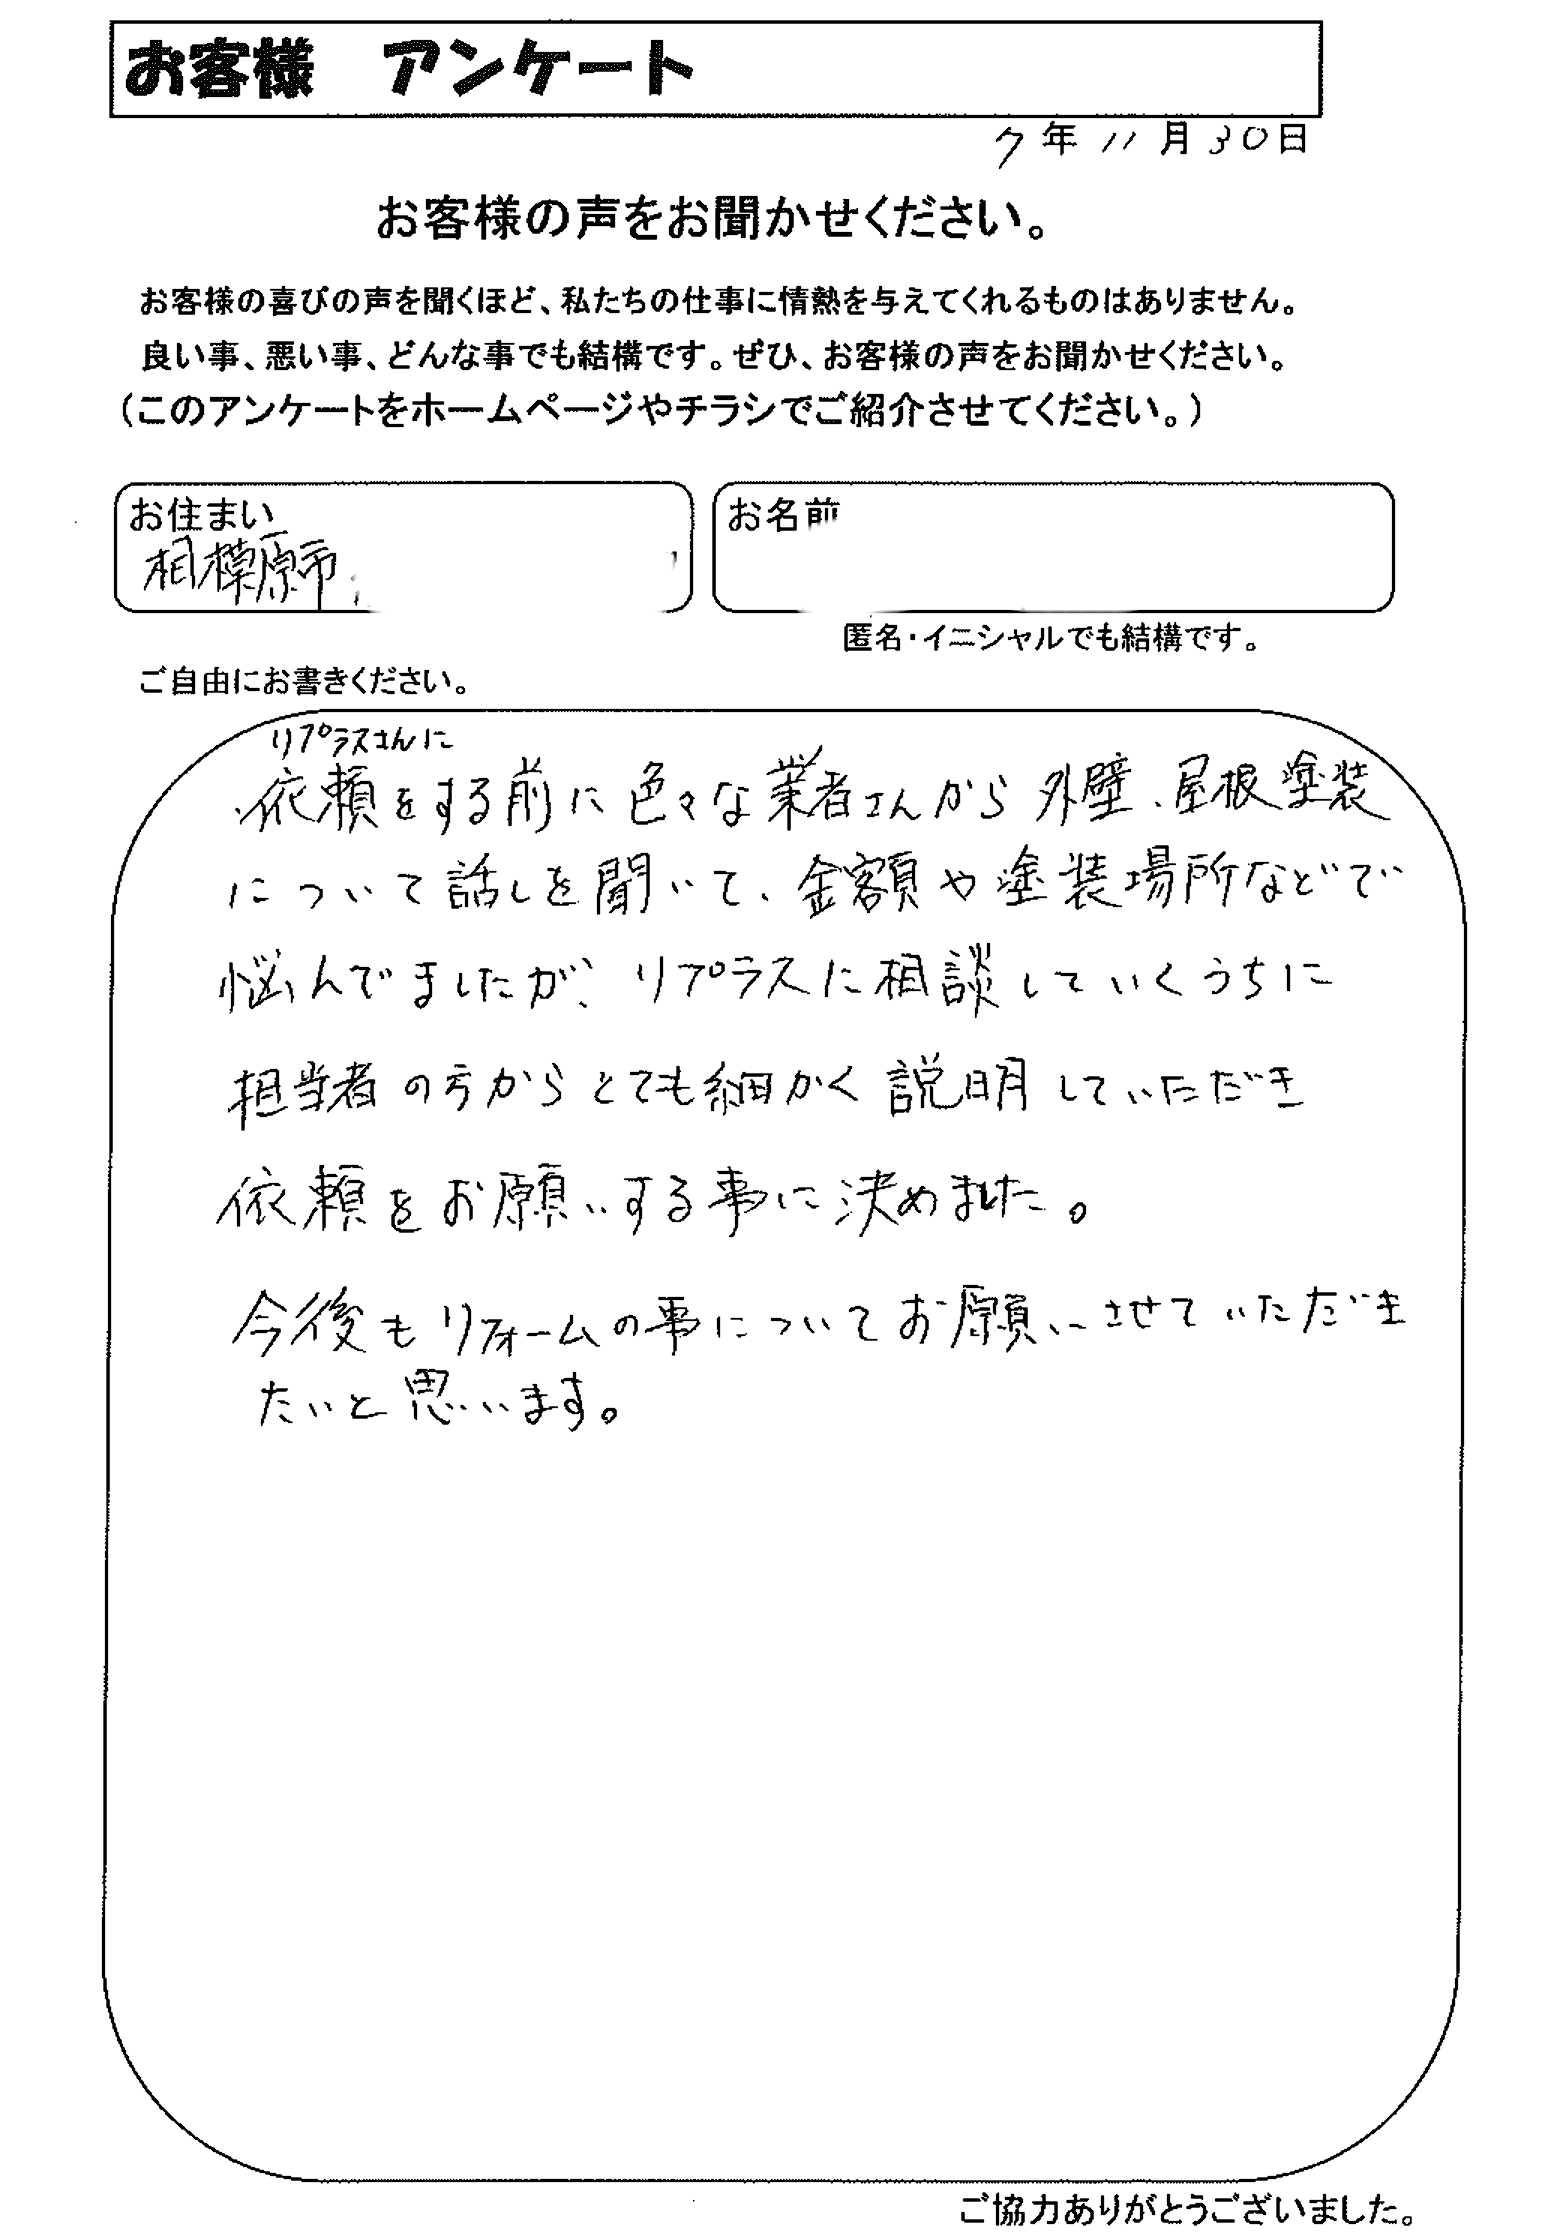 お客様　アンケート
7年11月30日
お客様の声をお聞かせください。
お客様の喜びの声を聞くほど、私たちの仕事に情熱を与えてくれるものはありません。
良い事、悪い事、どんな事でも結構です。ぜひ、お客様の声をお聞かせください。
（このアンケートをホームページやチラシでご紹介させてください。）
お住まい
相模原市
お名前
匿名・イニシャルでも結構です。
ご自由にお書きください。
リプラスさんに
・依頼をする前に色々な業者さんから外壁、屋根塗装
について話しを聞いて、金額や塗装場所などで
悩んでましたが、リプラスに相談していくうちに
担当者の方からとても細かく説明していただき
依頼をお願いする事に決めました。
今後もリフォームの事についてお願いさせていただき
たいと思います。
ご協力ありがとうございました。